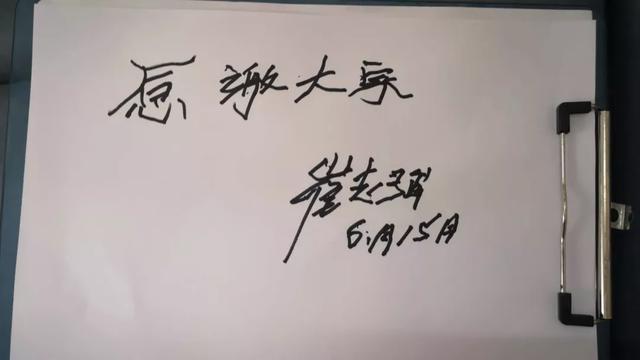 感激大家
崔志强
6月15日